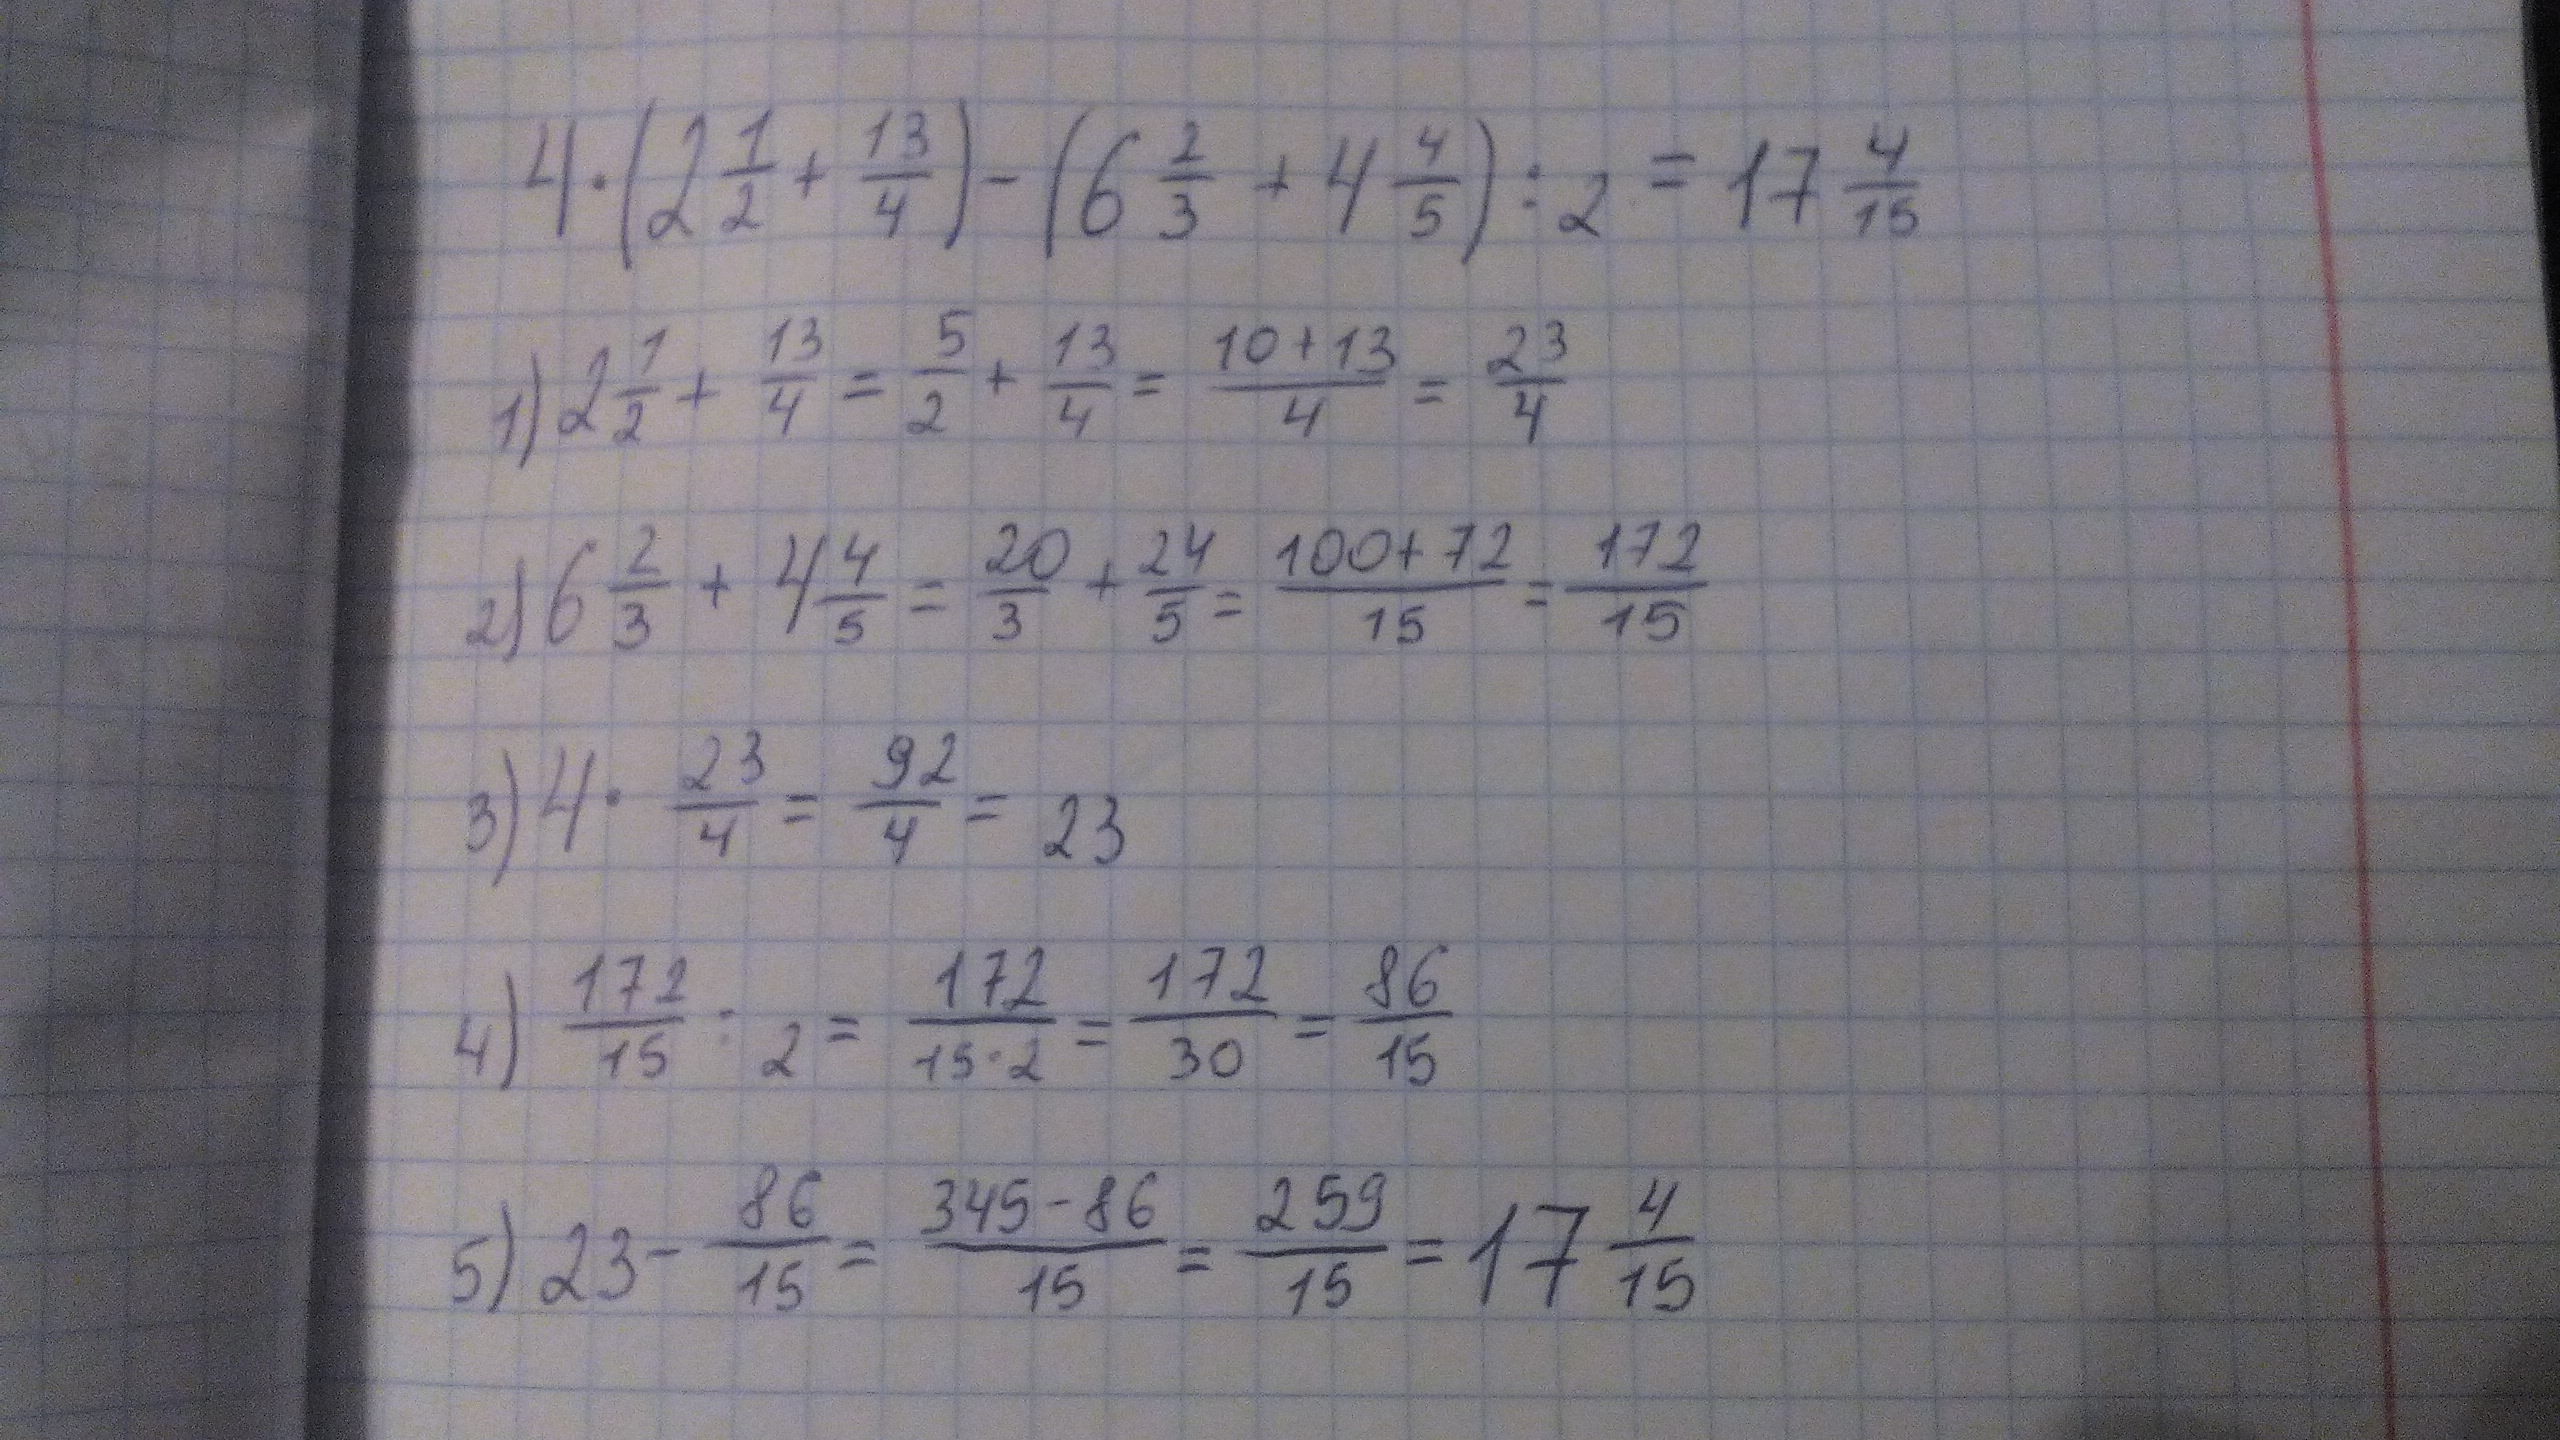 4·(2 1/2 + 13/4) - (6 2/3 + 4 4/5) : 2 = 17 4/15
1) 2 1/2 + 13/4 = 5/2 + 13/4 = (10+13)/4 = 23/4
2) 6 2/3 + 4 4/5 = 20/3 + 24/5 = (100+72)/15 = 172/15
3) 4 · 23/4 = 92/4 = 23
4) 172/15 : 2 = 172/(15·2) = 172/30 = 86/15
5) 23 - 86/15 = (345-86)/15 = 259/15 = 17 4/15